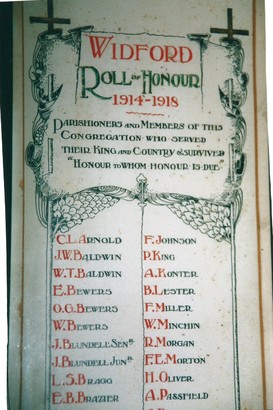 WIDFORD
ROLL OF HONOUR
1914-1918
PARISHIONERS AND MEMBERS OF THIS
CONGREGATION WHO SERVED
THEIR KING AND COUNTRY & SURVIVED
"HONOUR TO WHOM HONOUR IS DUE"
C. L. ARNOLD
J. W. BALDWIN
W. T. BALDWIN
E. BEWERS
O. G. BEWERS
W. BEWERS
J. BLUNDELL SENR
J. BLUNDELL JUNR
L. S. BRAGG
E. B. BRAZIER
F. JOHNSON
P. KING
A. KONTER
B. LESTER
F. MILLER
W. MINCHIN
R. MORGAN
F. E. MORTON
H. OLIVER
A. PASSFIELD